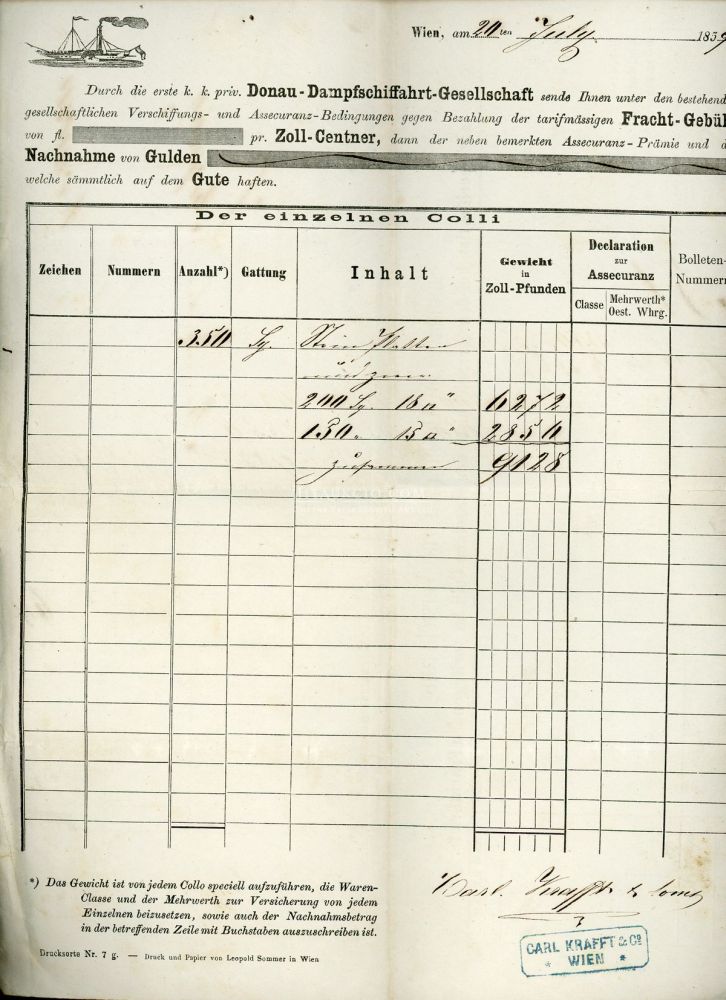 Wien, am 20ten July 1859
Durch die erste k. k. priv. Donau-Dampfschiffahrt-Gesellschaft sende Ihnen unter den bestehend
gesellschaftlichen Verschiffungs- und Assecuranz-Bedingungen gegen Bezahlung der tarifmässigen Fracht-Gebü
von fl. pr. Zoll-Centner, dann der neben bemerkten Assecuranz-Prämie und d
Nachnahme von Gulden
welche sämmtlich auf dem Gute haften.
Der einzelnen Colli
Zeichen Nummern Anzahl*) Gattung Inhalt Gewicht in Zoll-Pfunden Declaration zur Assecuranz Bolleten- Nummern
Classe Mehrwerth* Oest. Whrg.
350 Stein Platten
und zwar
200 18 a" 6272
150 " 15 a" 2856
zusammen 9128
*) Das Gewicht ist von jedem Collo speciell aufzuführen, die Waren-
Classe und der Mehrwerth zur Versicherung von jedem
Einzelnen beizusetzen, sowie auch der Nachnahmsbetrag
in der betreffenden Zeile mit Buchstaben auszuschreiben ist.
Carl Krafft & Comp
CARL KRAFFT & Co
* WIEN *
Drucksorte Nr. 7 g. — Druck und Papier von Leopold Sommer in Wien